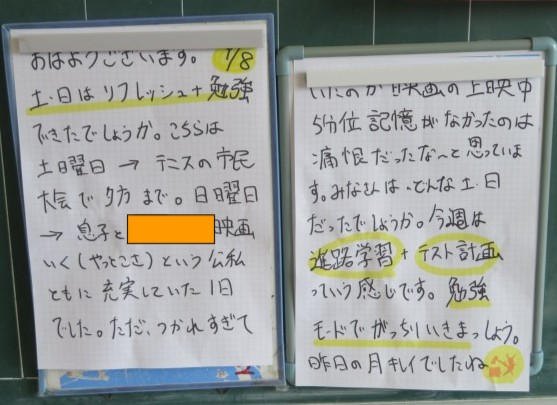 おはようございます。 7/8
土・日はリフレッシュ+勉強
できたでしょうか。こちらは
土曜日 → テニスの市民
大会で夕方まで。日曜日
→ 息子と 映画
いく(やっとこさ)という公私
ともに充実していた1日
でした。ただ、つかれすぎて
いたのか映画の上映中
5分位記憶がなかったのは
痛恨だったな〜と思っていま
す。みなさんは、どんな土・日
だったでしょうか。今週は
進路学習+テスト計画
っていう感じです。勉強
モードでがっちりいきましょう。
昨日の月キレイでしたね